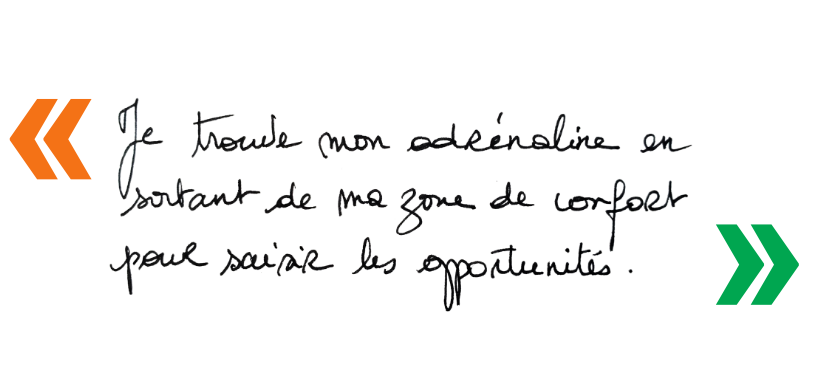 « Je trouve mon adrénaline en
sortant de ma zone de confort
pour saisir les opportunités. »